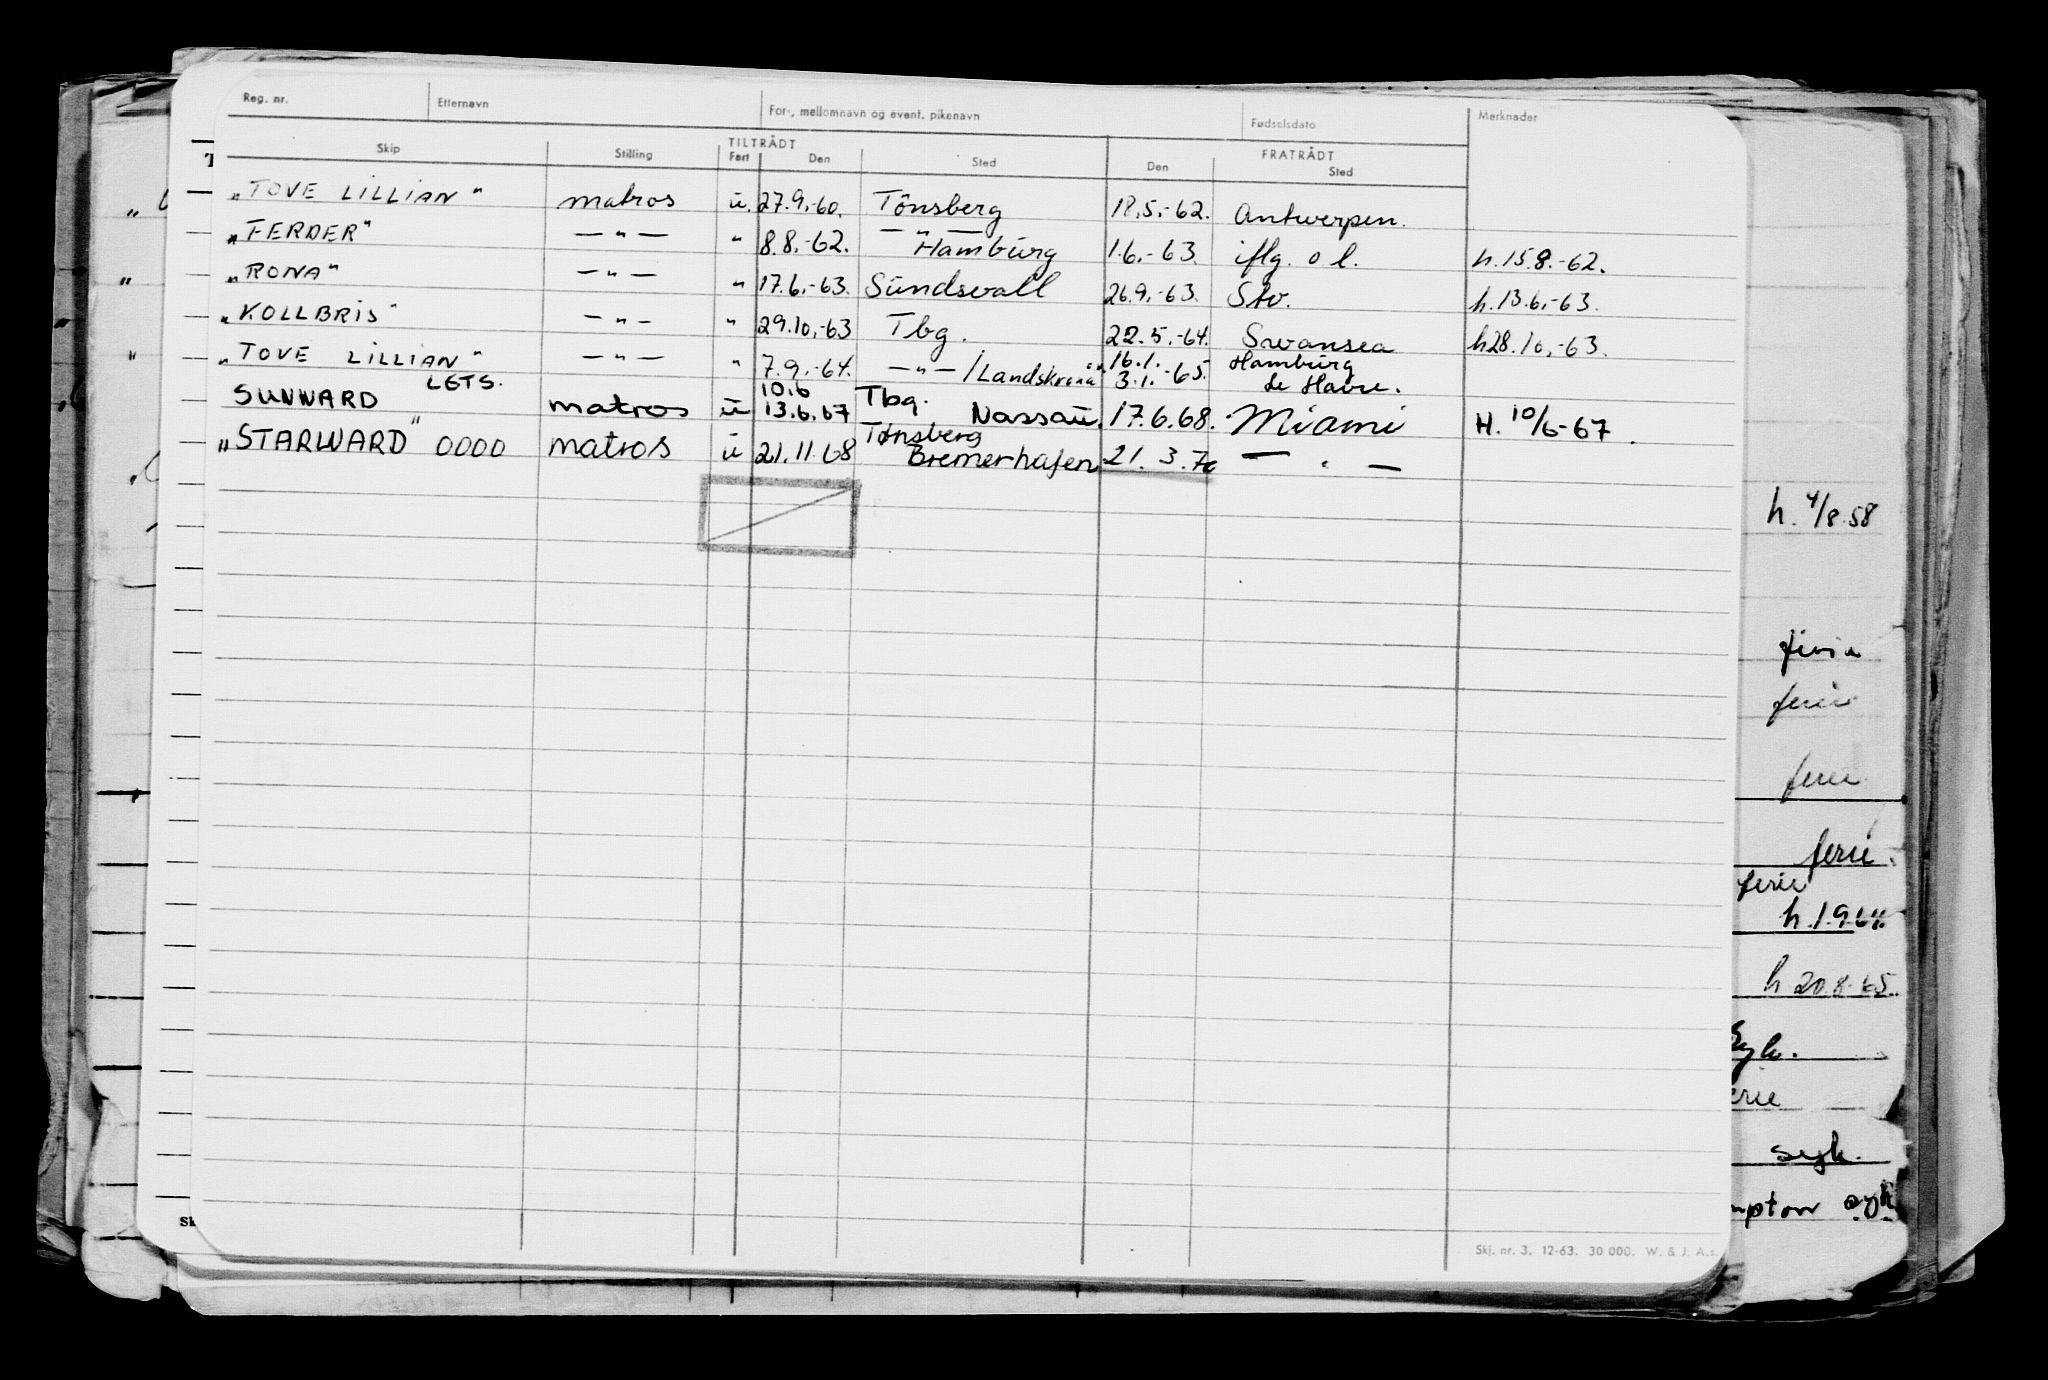 Reg. nr. Etternavn For-, mellomnavn og event. pikenavn Fødselsdato Merknader
TILTRÅDT FRATRÅDT
Skip Stilling Fart Den Sted Den Sted
„TOVE LILLIAN" matros ü. 27.9.-60. Tönsberg 18.5.-62. Antwerpen.
„FERDER" —„— „ 8.8.-62. —„— Hamburg 1.6.-63. iflg. o l. h.15.8.-62.
„RONA" —„— „ 17.6.-63. Sundsvall 26.9.-63. Stv. h.13.6.-63.
„KOLLBRIS" —„— „ 29.10.-63 Tbg. 22.5.-64. Swansea h28.10.-63.
„TOVE LILLIAN" —„— „ 7.9.-64. —„—/Landskrona 16.1. 3.1.-65. Hamburg Le Havre.
SUNWARD LGTS. matros ü 10.6 13.6.67 Tbg. Nassau. 17.6.68. Miami H. 10/6-67.
„STARWARD" 0000 matros ü 21.11.68 Tønsberg Bremerhafen 21.3.70 —„—
h. 4/8.58
ferie
ferie
ferie
ferie.
ferie
h.1.9.64.
h 20.8.65.
Syk.
erie
syk.
mpton syk.
Skj. nr. 3. 12-63. 30 000. W. & J. A.s.